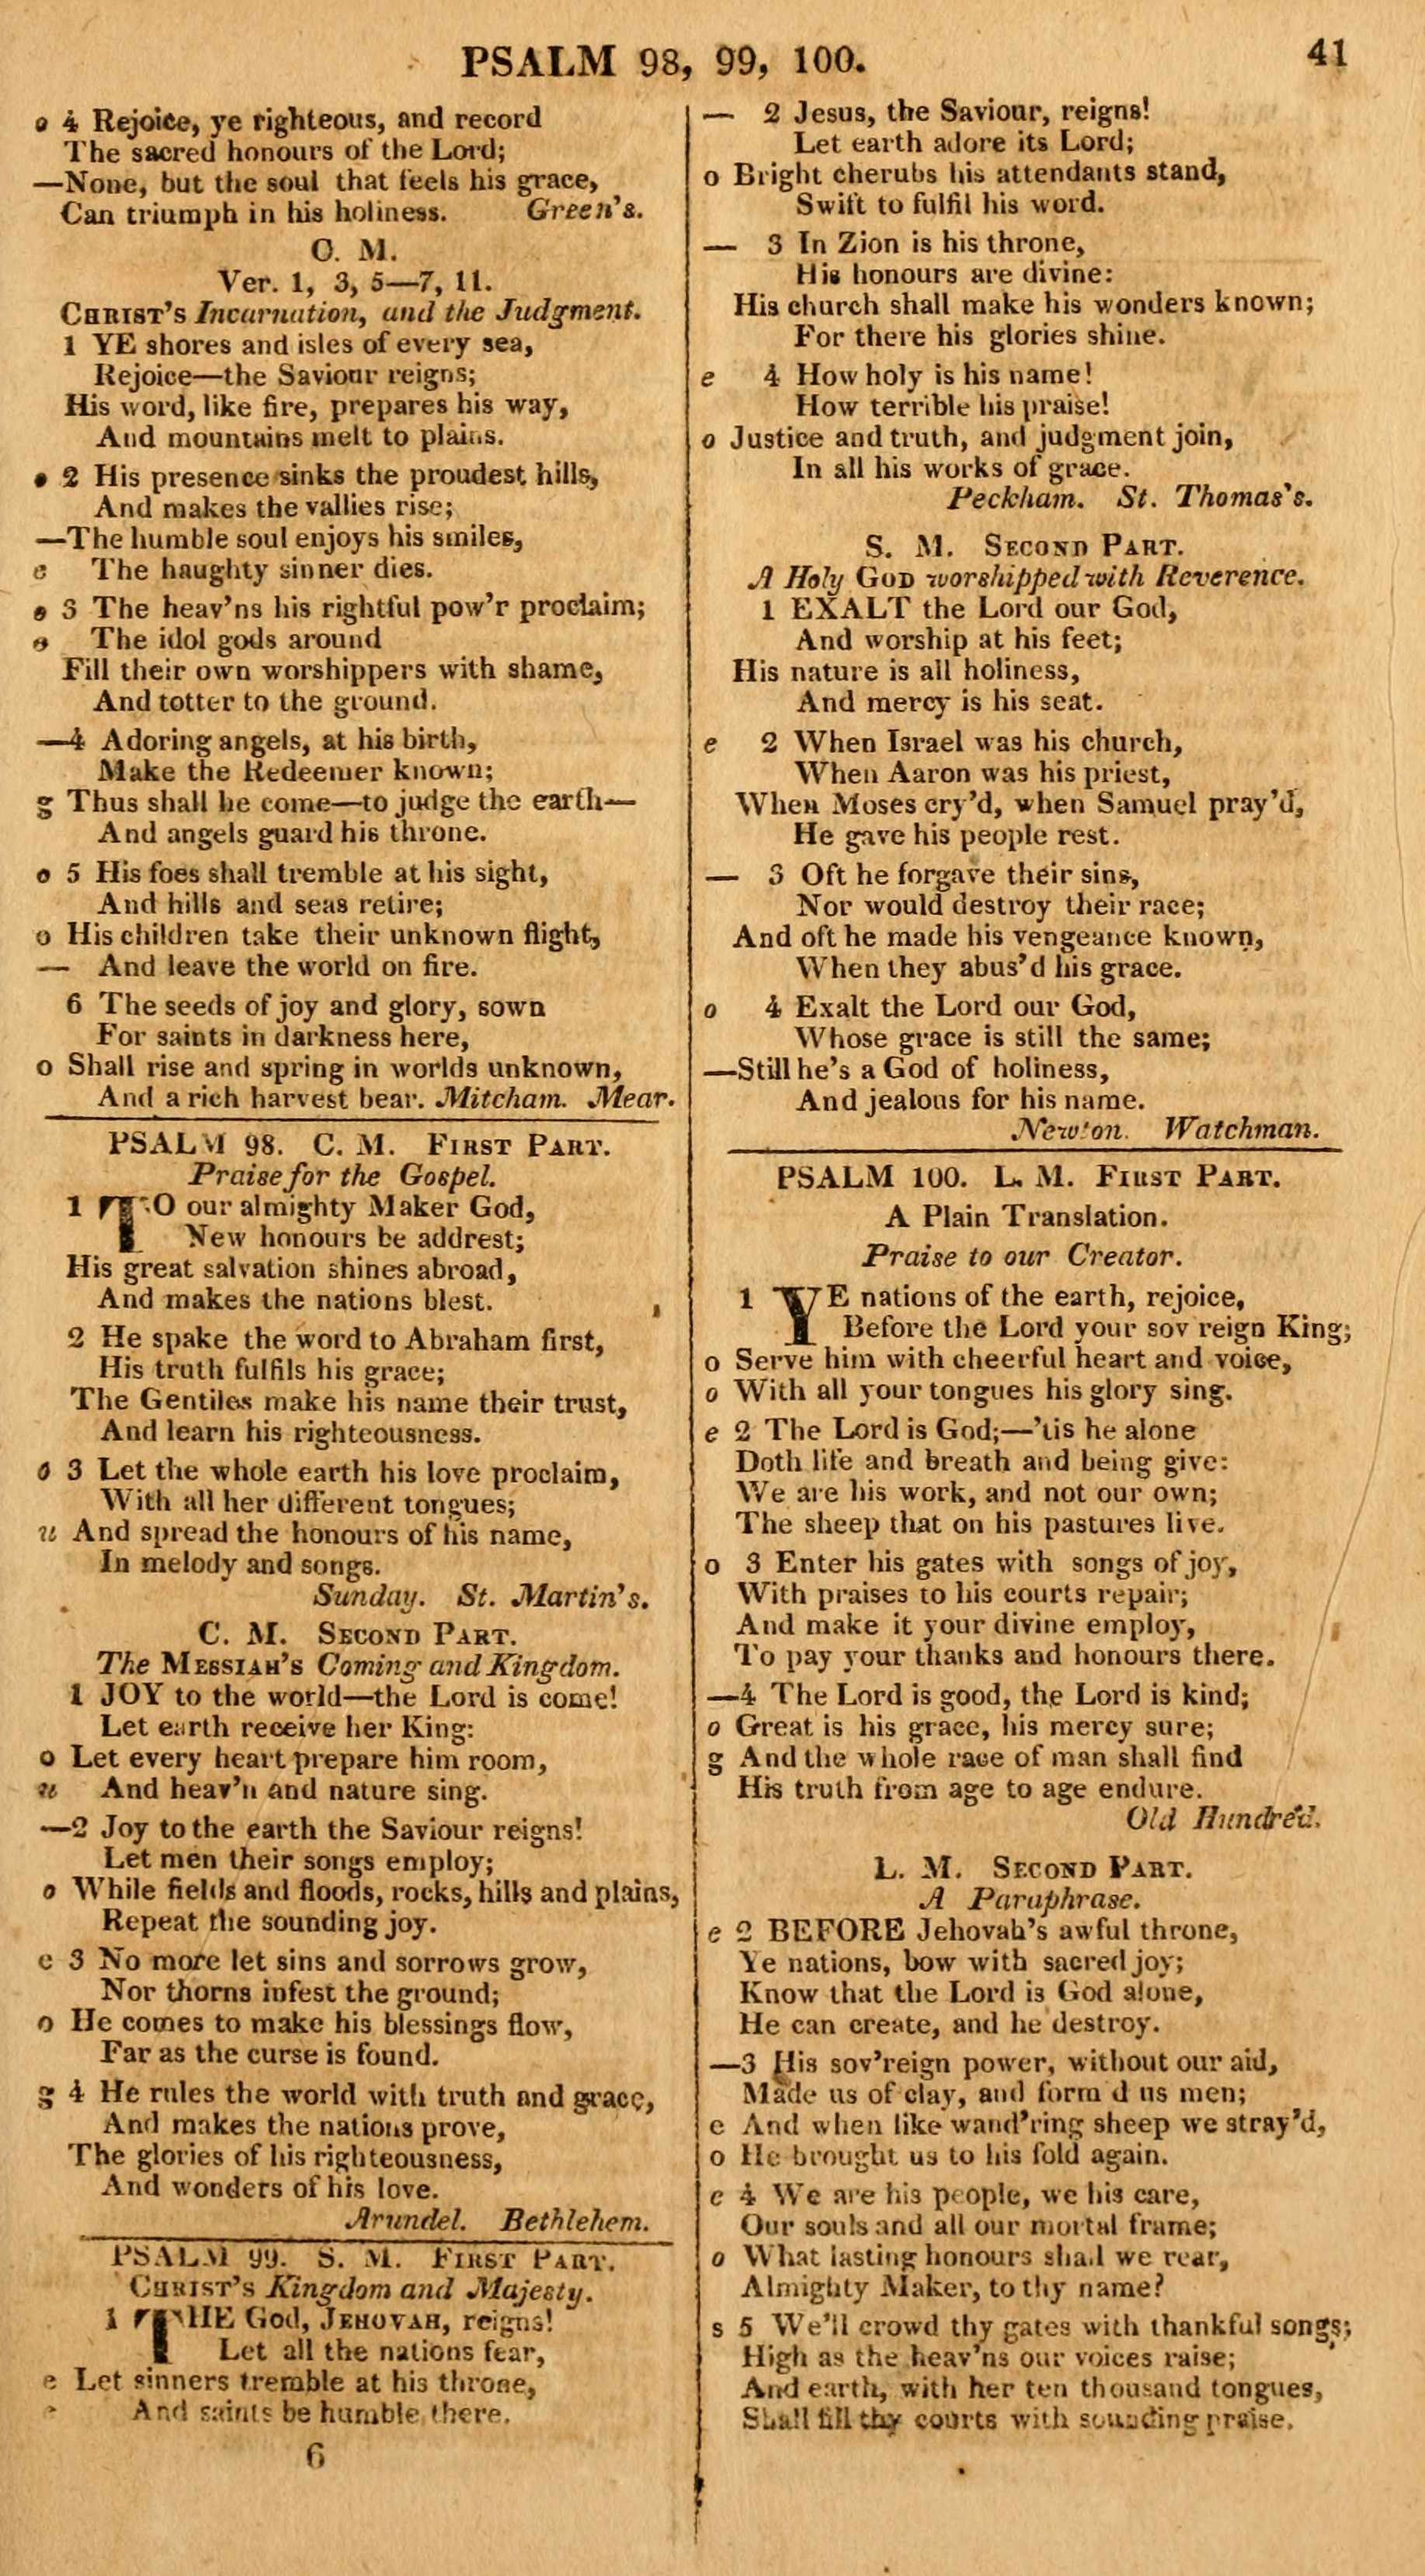 PSALM 98, 99, 100.
41
o 4 Rejoice, ye righteous, and record
The sacred honours of the Lord;
—None, but the soul that feels his grace,
Can triumph in his holiness. Green's.
C. M.
Ver. 1, 3, 5—7, 11.
CHRIST'S Incarnation, and the Judgment.
1 YE shores and isles of every sea,
Rejoice—the Saviour reigns;
His word, like fire, prepares his way,
And mountains melt to plains.
2 His presence sinks the proudest hills,
And makes the vallies rise;
—The humble soul enjoys his smiles,
e The haughty sinner dies.
3 The heav'ns his rightful pow'r proclaim;
The idol gods around
Fill their own worshippers with shame,
And totter to the ground.
—4 Adoring angels, at his birth,
Make the Redeemer known;
g Thus shall he come—to judge the earth—
And angels guard his throne.
o 5 His foes shall tremble at his sight,
And hills and seas retire;
o His children take their unknown flight,
— And leave the world on fire.
6 The seeds of joy and glory, sown
For saints in darkness here,
o Shall rise and spring in worlds unknown,
And a rich harvest bear. Mitcham. Mear.
PSALM 98. C. M. FIRST PART.
Praise for the Gospel.
1 TO our almighty Maker God,
New honours be addrest;
His great salvation shines abroad,
And makes the nations blest.
2 He spake the word to Abraham first,
His truth fulfils his grace;
The Gentiles make his name their trust,
And learn his righteousness.
o 3 Let the whole earth his love proclaim,
With all her different tongues;
u And spread the honours of his name,
In melody and songs.
Sunday. St. Martin's.
C. M. SECOND PART.
The MESSIAH'S Coming and Kingdom.
1 JOY to the world—the Lord is come!
Let earth receive her King:
o Let every heart prepare him room,
u And heav'n and nature sing.
—2 Joy to the earth the Saviour reigns!
Let men their songs employ;
o While fields and floods, rocks, hills and plains,
Repeat the sounding joy.
e 3 No more let sins and sorrows grow,
Nor thorns infest the ground;
o He comes to make his blessings flow,
Far as the curse is found.
g 4 He rules the world with truth and grace,
And makes the nations prove,
The glories of his righteousness,
And wonders of his love.
Arundel. Bethlehem.
PSALM 99. S. M. FIRST PART.
CHRIST'S Kingdom and Majesty.
1 THE God, JEHOVAH, reigns!
Let all the nations fear,
e Let sinners tremble at his throne,
And saints be humble there.
6
— 2 Jesus, the Saviour, reigns!
Let earth adore its Lord;
o Bright cherubs his attendants stand,
Swift to fulfil his word.
— 3 In Zion is his throne,
His honours are divine:
His church shall make his wonders known;
For there his glories shine.
e 4 How holy is his name!
How terrible his praise!
o Justice and truth, and judgment join,
In all his works of grace.
Peckham. St. Thomas's.
S. M. SECOND PART.
A Holy GOD worshipped with Reverence.
1 EXALT the Lord our God,
And worship at his feet;
His nature is all holiness,
And mercy is his seat.
e 2 When Israel was his church,
When Aaron was his priest,
When Moses cry'd, when Samuel pray'd,
He gave his people rest.
— 3 Oft he forgave their sins,
Nor would destroy their race;
And oft he made his vengeance known,
When they abus'd his grace.
o 4 Exalt the Lord our God,
Whose grace is still the same;
—Still he's a God of holiness,
And jealous for his name.
Newton. Watchman.
PSALM 100. L. M. FIRST PART.
A Plain Translation.
Praise to our Creator.
1 YE nations of the earth, rejoice,
Before the Lord your sov reign King;
o Serve him with cheerful heart and voice,
o With all your tongues his glory sing.
e 2 The Lord is God;—'tis he alone
Doth life and breath and being give:
We are his work, and not our own;
The sheep that on his pastures live.
o 3 Enter his gates with songs of joy,
With praises to his courts repair;
And make it your divine employ,
To pay your thanks and honours there.
—4 The Lord is good, the Lord is kind;
o Great is his grace, his mercy sure;
g And the whole race of man shall find
His truth from age to age endure.
Old Hundred.
L. M. SECOND PART.
A Paraphrase.
e 2 BEFORE Jehovah's awful throne,
Ye nations, bow with sacred joy;
Know that the Lord is God alone,
He can create, and he destroy.
—3 His sov'reign power, without our aid,
Made us of clay, and form d us men;
e And when like wand'ring sheep we stray'd,
o He brought us to his fold again.
e 4 We are his people, we his care,
Our souls and all our mortal frame;
o What lasting honours shall we rear,
Almighty Maker, to thy name?
s 5 We'll crowd thy gates with thankful songs;
High as the heav'ns our voices raise;
And earth, with her ten thousand tongues,
Shall fill thy courts with sounding praise.